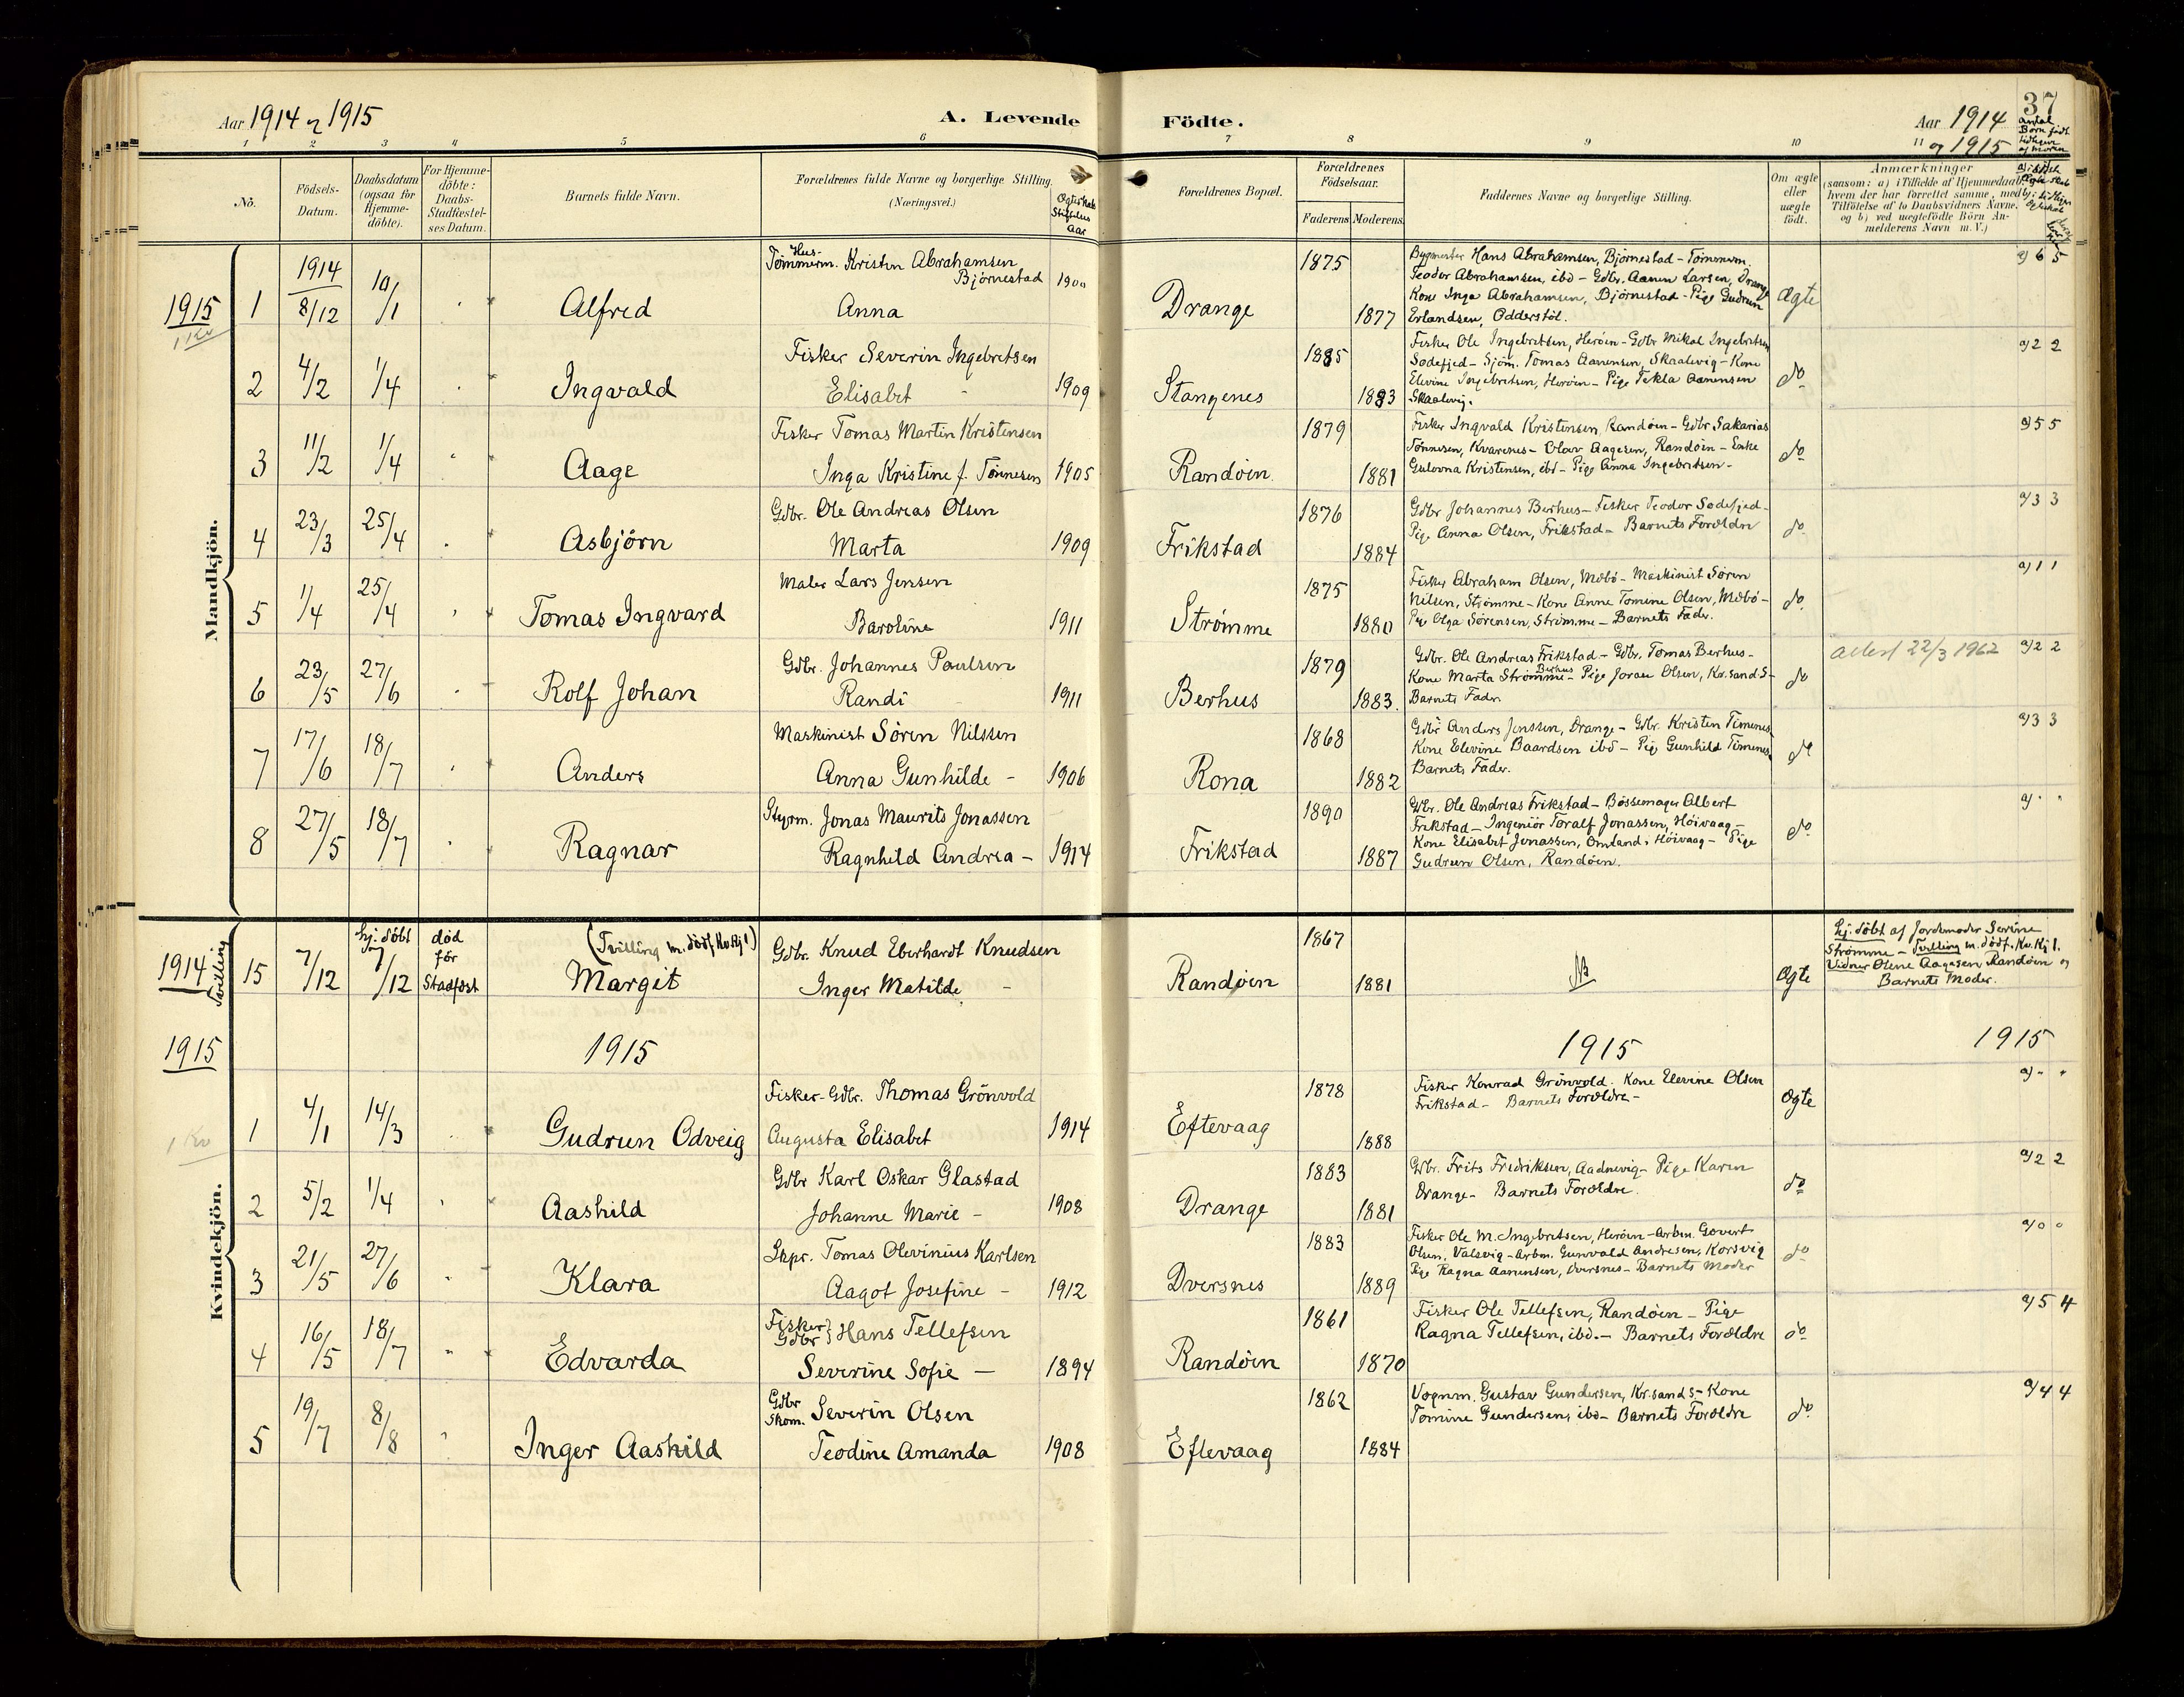 Aar 1914 og 1915
A. Levende
Födte.
Aar 1914
og 1915
37
antal
Börn født
tidligere
af moren
1 2 3 4 5 6 7 8 9 10 11
No.
Födsels-
Datum.
Daabsdatum
(ogsaa for
Hjemme-
döbte).
For Hjemme-
döbte:
Daabs-
Stadfæstel-
ses Datum.
Barnets fulde Navn.
Forældrenes fulde Navne og borgerlige Stilling.
(Næringsvei.)
Ægteskab
Stiftelses
Aar
Forældrenes Bopæl.
Forældrenes
Födselsaar.
Faderens Moderens
Faddernes Navne og borgerlige Stilling.
Om ægte
eller
uægte
födt.
Anmærkninger
(saasom: a) i Tilfælde af Hjemmedaab,
hvem der har forrettet samme, med
Tilföielse af to Daabsvidners Navne,
og b) ved uægtefödte Börn An-
melderens Navn m. V.)
Mandkjön.
1915
1 Kv
1
1914
8/12
10/1
Alfred
Hus-
Tømmerm. Kristen Abrahamsen
Bjørnestad
Anna
1900
Drange
1875
1877
Bygmester Hans Abrahamsen, Bjørnestad - Tømmerm.
Teodor Abrahamsen, ibd - Gdbr. Aanen Larsen, Drange
Kone Inga Abrahamsen, Bjørnestad - Pige Gudrun
Erlandsen, Odderstöl.
Ægte
a) 6 5
2 4/2 1/4
Ingvald
Fisker Severin Ingebretsen
Elisabet -
1909
Stangenes
1885
1883
Fisker Ole Ingebretsen, Herøen - Gdbr Mikal Ingebretsen
Sodefjed - Sjøm. Tomas Aanensen, Skaalevig - Kone
Elevine Ingebretsen, Herøen - Pige Tekla Aanensen
Skaalevig.
do
a) 2 2
3 11/2 1/4
Aage
Fisker Tomas Martin Kristensen
Inga Kristine f. Tønnesen
1905
Randøen
1879
1881
Fisker Ingvald Kristensen, Randøen - Gdbr Sakarias
Tønnesen, Kvarenes - Olav Aagesen, Randøen - Enke
Gulovna Kristensen, ibd - Pige Anna Ingebretsen -
do
a) 5 5
4 23/3 25/4
Asbjörn
Gdbr. Ole Andreas Olsen
Marta
1909
Frikstad
1876
1884
Gdbr Johannes Berhus - Fisker Teodor Sodefjed -
Pige Anna Olsen, Frikstad - Barnets Forældre
do
a) 3 3
5 1/4 25/4
Tomas Ingvard
Maler Lars Jensen
Baroline
1911
Strømme
1875
1880
Fisker Abraham Olsen, Mebö - Maskinist Sören
Nilsen, Strømme - Kone Anne Tomine Olsen, Mebö -
Pige Olga Sörensen, Strømme - Barnets Fader.
do
a) 1 1
6 23/5 27/6
Rolf Johan
Gdbr. Johannes Paulsen
Randi
1911
Berhus
1879
1883.
Gdbr. Ole Andreas Frikstad - Gdbr. Tomas Berhus -
Kone Marta Strømme - Pige Joran Olsen, Kr.sand S -
Berhus
Barnets Fader.
do
attest 22/3 1962
a) 2 2
7 17/6 18/7
Anders
Maskinist Sören Nilssen
Anna Gunhilde -
1906
Rona
1868
1882
Gdbr Anders Jenssen, Drange - Gdbr. Kristen Timenes
Kone Elevine Baardsen ibd - Pige Gunhild Timenes,
Barnets Fader.
do
a) 3 3
8 27/5 18/7
Ragnar
Styrm. Jonas Maurits Jonassen
Ragnhild Andrea -
1914
Frikstad
1890
1887
Gdbr. Ole Andreas Frikstad - Bössemager Albert
Frikstad - Ingeniör Toralf Jonassen, Höivaag -
Kone Elisabet Jonassen, Omland, Höivaag - Pige
Gudrun Olsen, Randøen.
do
a) " "
Kvindekjön.
1914
Tvilling
15 7/12
hj. döbt
7/12
död
för
Stadfæst
(Tvilling m. dödf. Kv. Kj 1)
Margit
Gdbr. Knud Eberhardt Knudsen
Inger Matilde -
Randøen
1867
1881
Ægte
hj. döbt af Jordemoder Severine
Strømme - Tvilling m. dödf. Kv. Kj 1.
Vidner Olene Aagesen Randøen og
Barnets Moder.
1915
1915
1915
1915
1 Kv
1 4/1 14/3
Gudrun Odveig
Fisker-Gdbr. Thomas Grönvold
Augusta Elisabet
1914
Eftevaag
1878
1888
Fisker Konrad Grönvold. Kone Elevine Olsen
Frikstad - Barnets Forældre -
Ægte
a) " "
2 5/2 1/4
Aashild
Gdbr Karl Oskar Glastad
Johanne Marie -
1908
Drange
1883
1881
Gdbr. Frits Fredriksen, Aadnevig - Pige Karen
Drange - Barnets Forældre.
do
a) 2 2
3 21/5 27/6
Klara
Skpr. Tomas Olevinius Karlsen
Aagot Josefine -
1912
Dversnes
1883
1889
Fisker Ole M. Ingebretsen, Herøen - Arbm. Govert
Olsen, Valsvig - Arbm. Gunvald Andresen, Korsvig
Pige Ragna Aanensen, Dversnes - Barnets Moder
do
a) 0 0
4 16/5 18/7
Edvarda
Fisker
Gdbr } Hans Tellefsen
Severine Sofie -
1894
Randøen
1861
1870
Fisker Ole Tellefsen, Randøen - Pige
Ragna Tellefsen, ibd. - Barnets Forældre
do
a) 5 4
5 19/7 8/8
Inger Aashild
Gdbr
Skom. Severin Olsen
Teodine Amanda
1908
Eftevaag
1862
1884
Vognm. Gustav Gundersen, Kr.sand S - Kone
Tomine Gundersen, ibd - Barnets Forældre
do
a) 4 4